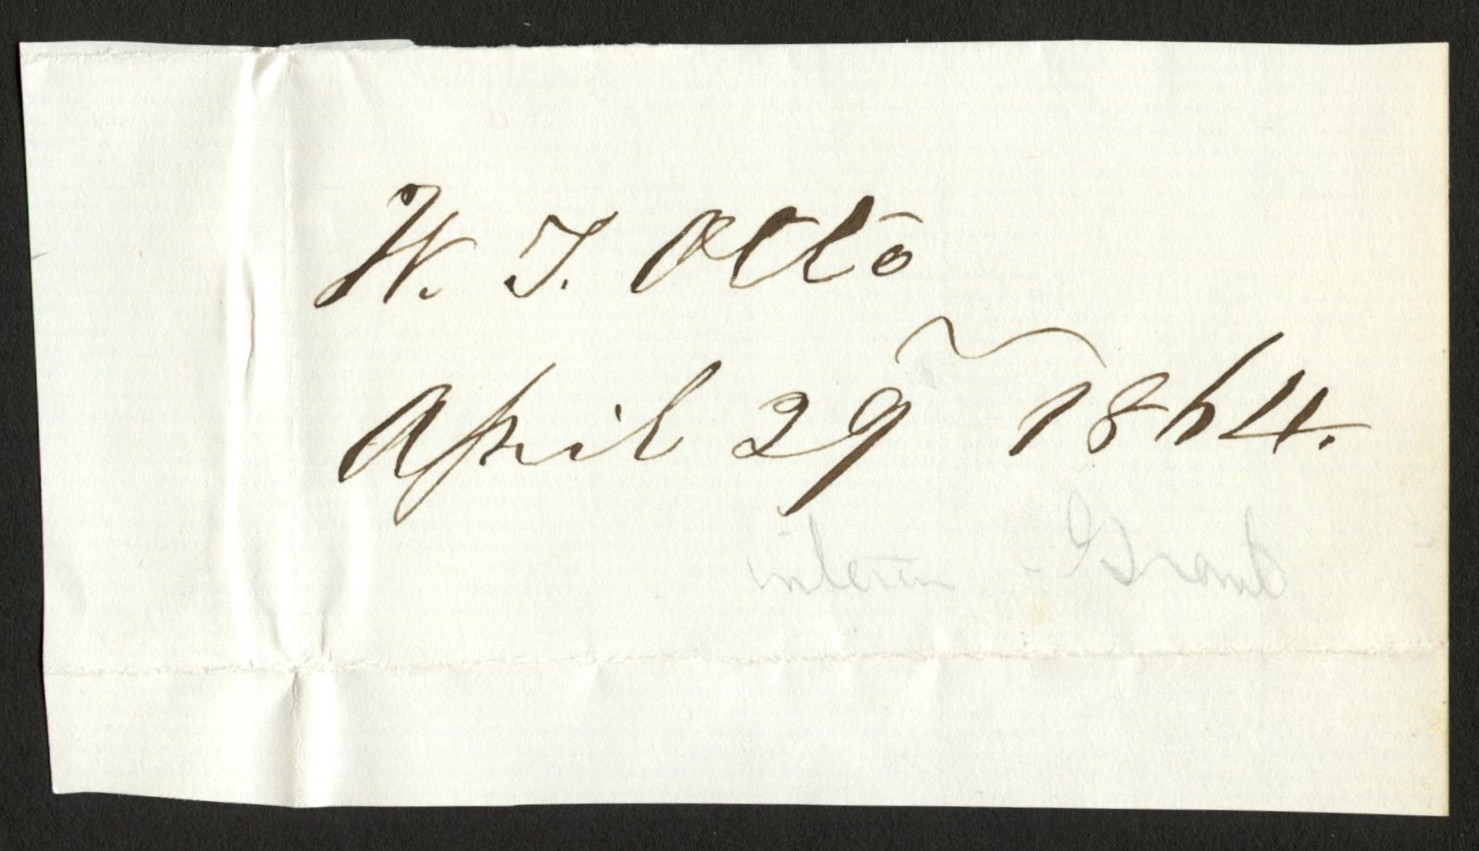 W. T. Otto
April 29 1864.
interim - Grant